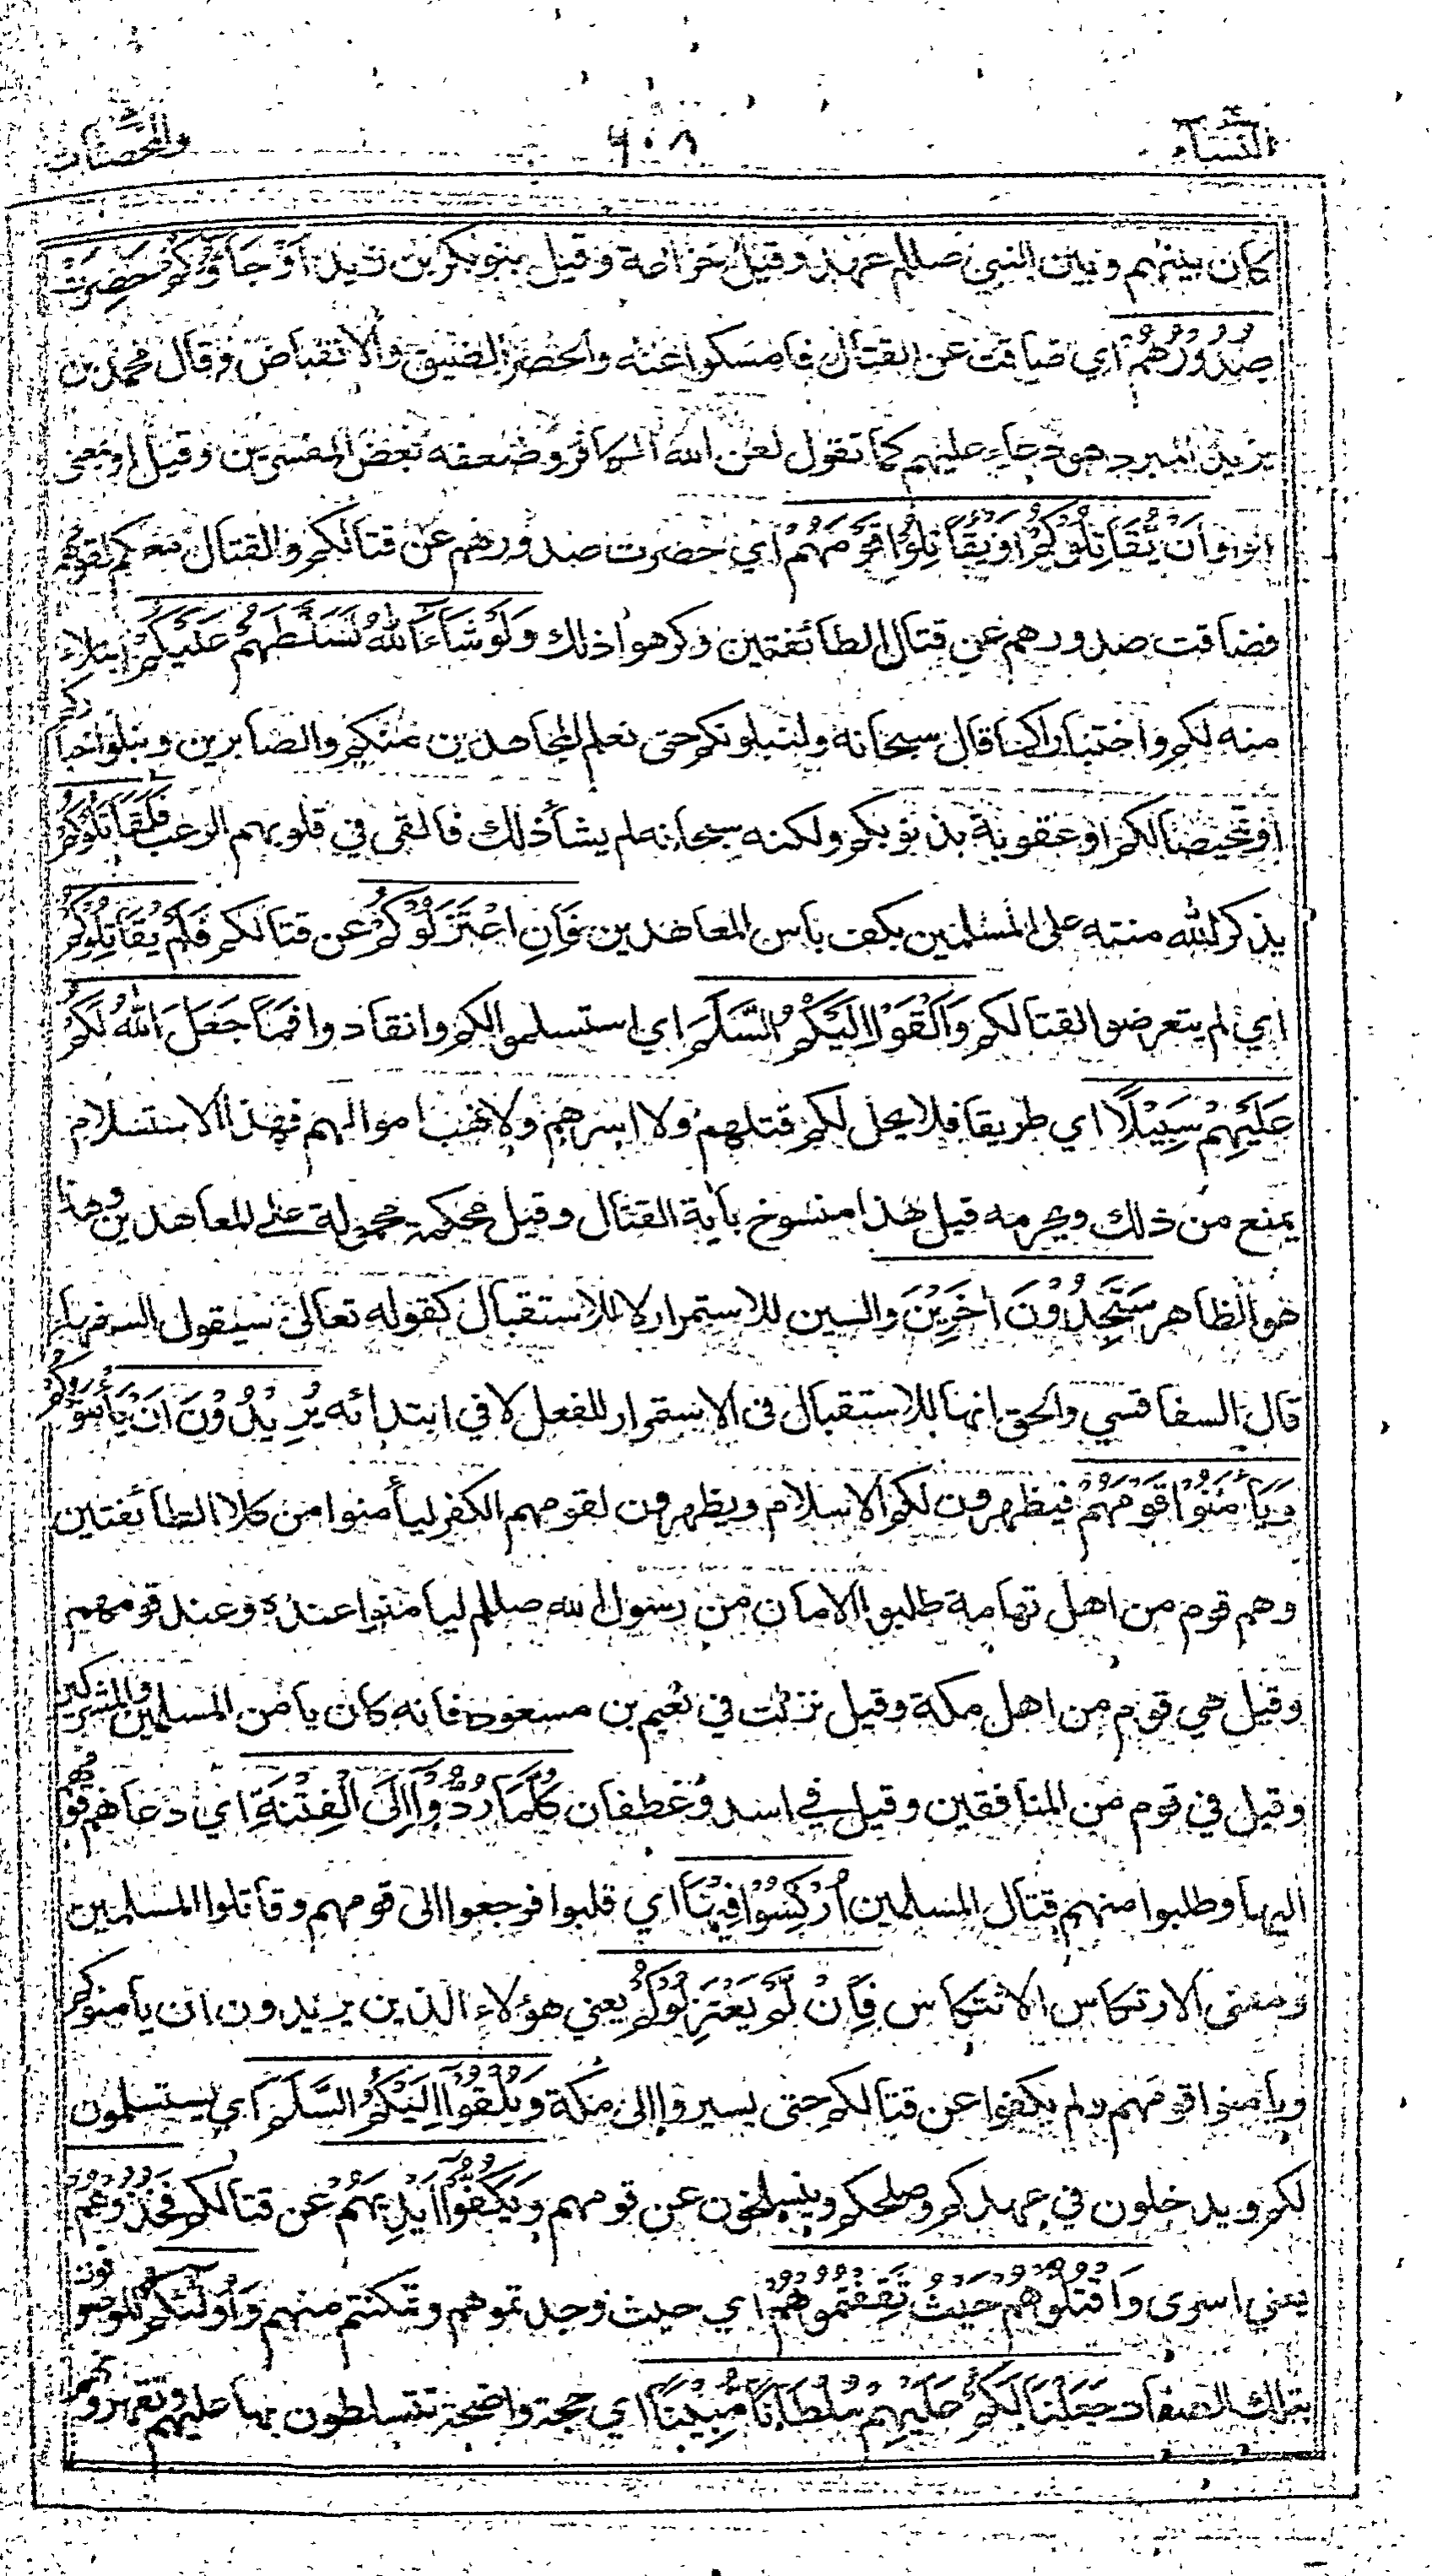 النسآء ٦٠٨ والمحصنات
كان بينهم وبين النبي صللم عهد وقيل خزاعة وقيل بنو بكر بن زيد اَوْ جَآءُوْكُمْ حَصِرَتْ
صُدُوْرُهُمْ اي ضاقت عن القتال فامسكوا عنه والحصر الضيق والانقباض وقال محمد بن
يزيد المبرد هو دعاء عليهم كما تقول لعن الله الكافر وضعفه بعض المفسرين وقيل او بمعنى
الواو اَنْ يُّقَاتِلُوْكُمْ اَوْ يُقَاتِلُوْا قَوْمَهُمْ اي حصرت صدورهم عن قتالكم والقتال معكم لقومهم
فضاقت صدورهم عن قتال الطائفتين وكرهوا ذلك وَلَوْ شَآءَ اللّٰهُ لَسَلَّطَهُمْ عَلَيْكُمْ ابتلاء
منه لكم واختبارا كما قال سبحانه ولنبلونكم حتى نعلم المجاهدين منكم والصابرين ونبلو اخباركم
او تمحيصا لكم او عقوبة بذنوبكم ولكنه سبحانه لم يشأ ذلك فالقى في قلوبهم الرعب فَلَقَاتَلُوْكُمْ
يذكر الله منته على المسلمين بكف بأس المعاهدين فَاِنِ اعْتَزَلُوْكُمْ عن قتالكم فَلَمْ يُقَاتِلُوْكُمْ
اي لم يتعرضوا لقتالكم وَاَلْقَوْا اِلَيْكُمُ السَّلَمَ اي استسلموا لكم وانقادوا فَمَا جَعَلَ اللّٰهُ لَكُمْ
عَلَيْهِمْ سَبِيْلًا اي طريقا فلا يحل لكم قتلهم ولا اسرهم ولا نهب اموالهم فهذا الاستسلام
يمنع من ذلك ويحرمه قيل هذا منسوخ بآية القتال وقيل محكمة محمولة على المعاهدين وهذا
هو الظاهر سَتَجِدُوْنَ اٰخَرِيْنَ والسين للاستمرار لا للاستقبال كقوله تعالى سيقول السفهاء
قال السفاقسي والحق انها للاستقبال في الاستمرار للفعل لا في ابتدائه يُرِيْدُوْنَ اَنْ يَّأْمَنُوْكُمْ
وَيَأْمَنُوْا قَوْمَهُمْ فيظهرون لكم الاسلام ويظهرون لقومهم الكفر ليأمنوا من كلا الطائفتين
وهم قوم من اهل تهامة طلبوا الامان من رسول الله صللم ليأمنوا عنده وعند قومهم
وقيل هي قوم من اهل مكة وقيل نزلت في نعيم بن مسعود فانه كان يأمن المسلمين والمشركين
وقيل في قوم من المنافقين وقيل في اسد وغطفان كُلَّمَا رُدُّوْا اِلَى الْفِتْنَةِ اي دعاهم قومهم
اليها وطلبوا منهم قتال المسلمين اُرْكِسُوْا فِيْهَا اي قلبوا فرجعوا الى قومهم وقاتلوا المسلمين
ومعنى الارتكاس الانتكاس فَاِنْ لَّمْ يَعْتَزِلُوْكُمْ يعني هؤلاء الذين يريدون ان يأمنوكم
ويأمنوا قومهم ولم يكفوا عن قتالكم حتى يسيروا الى مكة وَيُلْقُوْا اِلَيْكُمُ السَّلَمَ اي يستسلمون
لكم ويدخلون في عهدكم وصلحكم وينسلخون عن قومهم وَيَكُفُّوْا اَيْدِيَهُمْ عن قتالكم فَخُذُوْهُمْ
يعني اسرى وَاقْتُلُوْهُمْ حَيْثُ ثَقِفْتُمُوْهُمْ اي حيث وجدتموهم وتمكنتم منهم وَاُولٰٓئِكُمْ الموصوفون
بتلك الصفات جَعَلْنَا لَكُمْ عَلَيْهِمْ سُلْطَانًا مُّبِيْنًا اي حجة واضحة تتسلطون بها عليهم وتقهرونهم